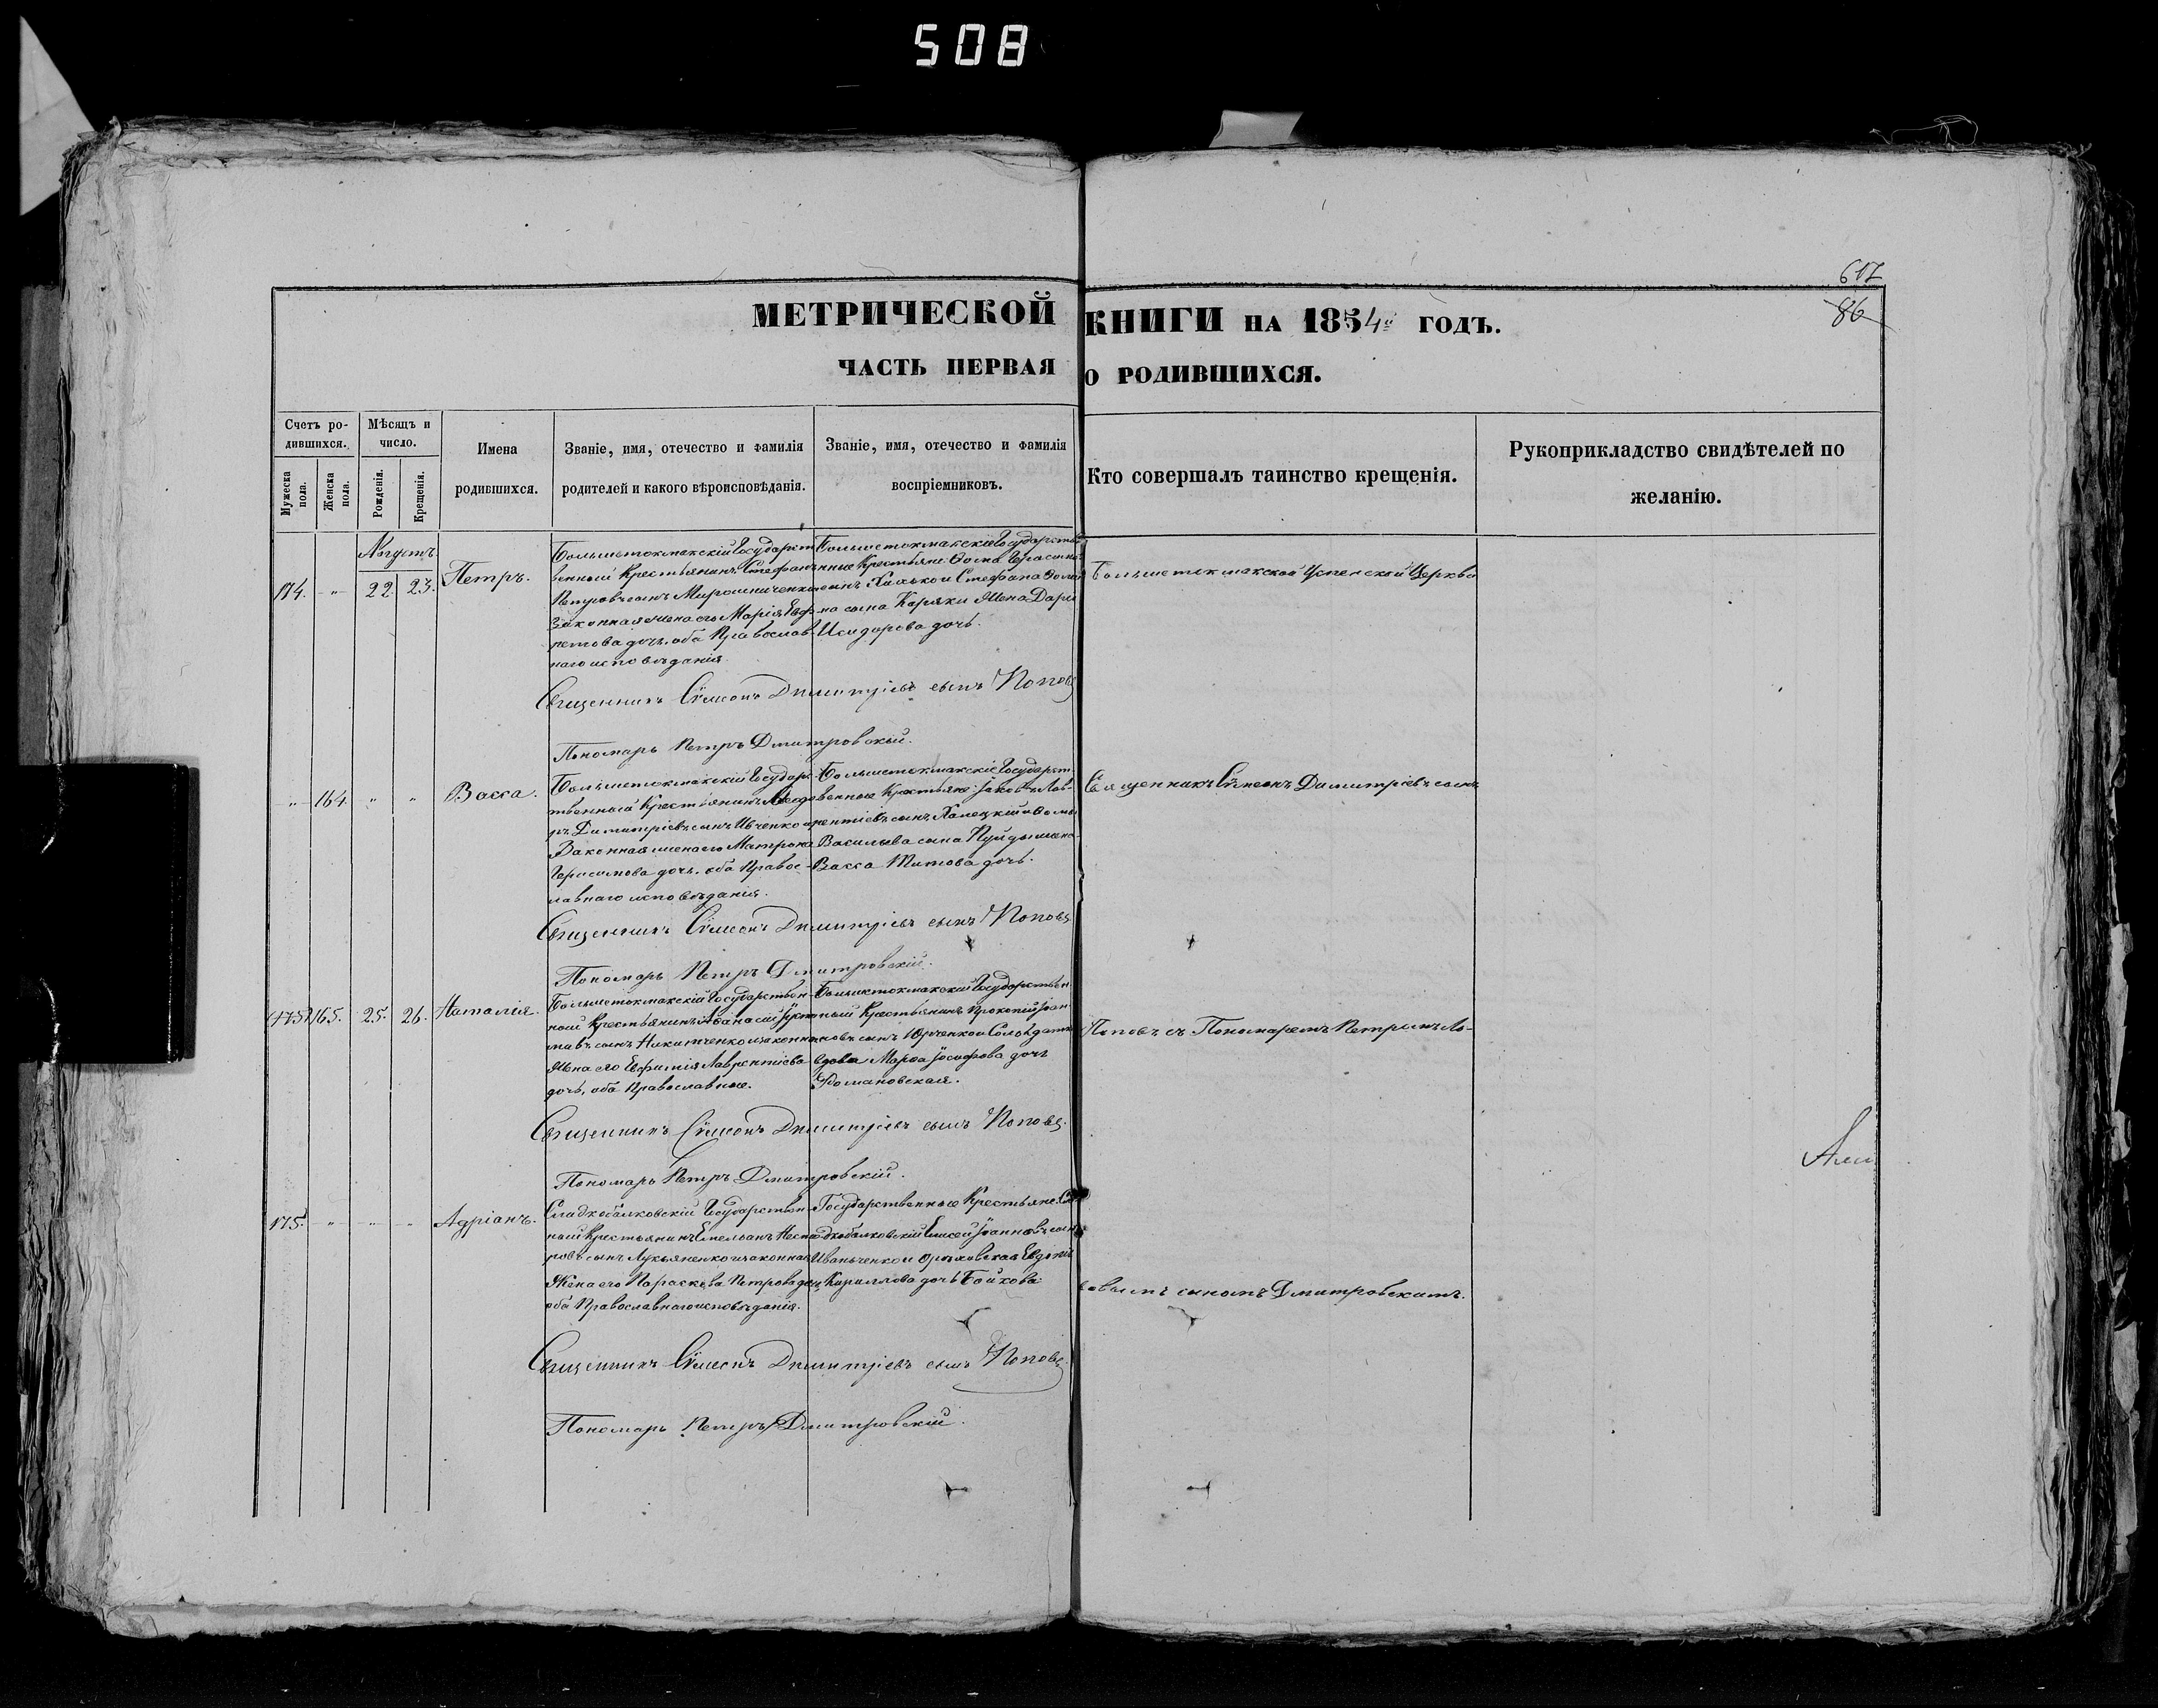 508
617
86
МЕТРИЧЕСКОЙ КНИГИ НА 1854й ГОДЪ.
ЧАСТЬ ПЕРВАЯ О РОДИВШИХСЯ.
Счетъ родившихся.
Мужеска пола.
Женска пола.
Мѣсяцъ и число.
Рожденія.
Крещенія.
Имена родившихся.
Званіе, имя, отечество и фамилія родителей и какого вѣроисповѣданія.
Званіе, имя, отечество и фамилія воспріемниковъ.
Кто совершалъ таинство крещенія.
Рукоприкладство свидѣтелей по желанію.
Августъ
174. - " - 22. 23. Петръ.
Большетокмакскій Государст
венный Крестьянинъ Стефанъ
Петровъ сынъ Мирошниченко и
законная жена его Марія
дочь, оба Православ-
наго исповѣданія.
Большетокмакскіе Государствен
ные Крестьяне Ѳома Герасимов
сынъ Халько и Стефана
на сына Каряки Жена Дарія
Исидорова дочь.
Большетокмакской Успенской Церкви
Священникъ Сѵмеонъ Димитріевъ сынъ Поповъ
Пономарь Петръ Дмитровскій.
" 164. " " Васса.
Большетокмакскій Государс-
твенный Крестьянинъ
ръ Димитріевъ сынъ Ивченко и
Законная жена его Матрона
Герасимова дочь, оба Правос-
лавнаго исповѣданія.
Большетокмакскіе Государст-
венные Крестьяне: Іаковъ Лав-
рентіевъ сынъ и
Васильева сына жена
Васса Титова дочь.
Священникъ Сѵмеонъ Димитріевъ сынъ
Священникъ Сѵмеонъ Димитріевъ сынъ Поповъ
Пономарь Петръ Дмитровскій.
165. 25. 26. Наталія.
Большетокмакскій Государствен-
ный Крестьянинъ Аѳанасій
сынъ Никитченко и законная
Жена его Евфимія Лаврентіева
дочь, оба Православные.
Большетокмакскій Государствен-
ный Крестьянинъ Прокопій Іоан-
новъ сынъ Юрченко и Солдатка
вдова Марѳа Іосифова дочь
Романовская.
Поповъ съ Пономаремъ Петромъ
Священникъ Сѵмеонъ Димитріевъ сынъ Поповъ.
Пономарь Петръ Дмитровскій.
175. - " - - " - - " - Адріанъ.
Сладкобалковскій Государствен-
ный Крестьянинъ Емельянъ
ровъ сынъ Лукьяненко и законная
Жена его Параскева Петрова дочь
оба Православнаго исповѣданія.
Государственные Крестьяне: Сла
дкобалковскій Елисей Іоанновъ сынъ
Иваньченко и Орѣховская Евдокія
Кириллова дочь Бойкова.
вымъ сыномъ Дмитровскимъ.
Священникъ Сѵмеонъ Димитріевъ сынъ Поповъ.
Пономарь Петръ Дмитровскій.